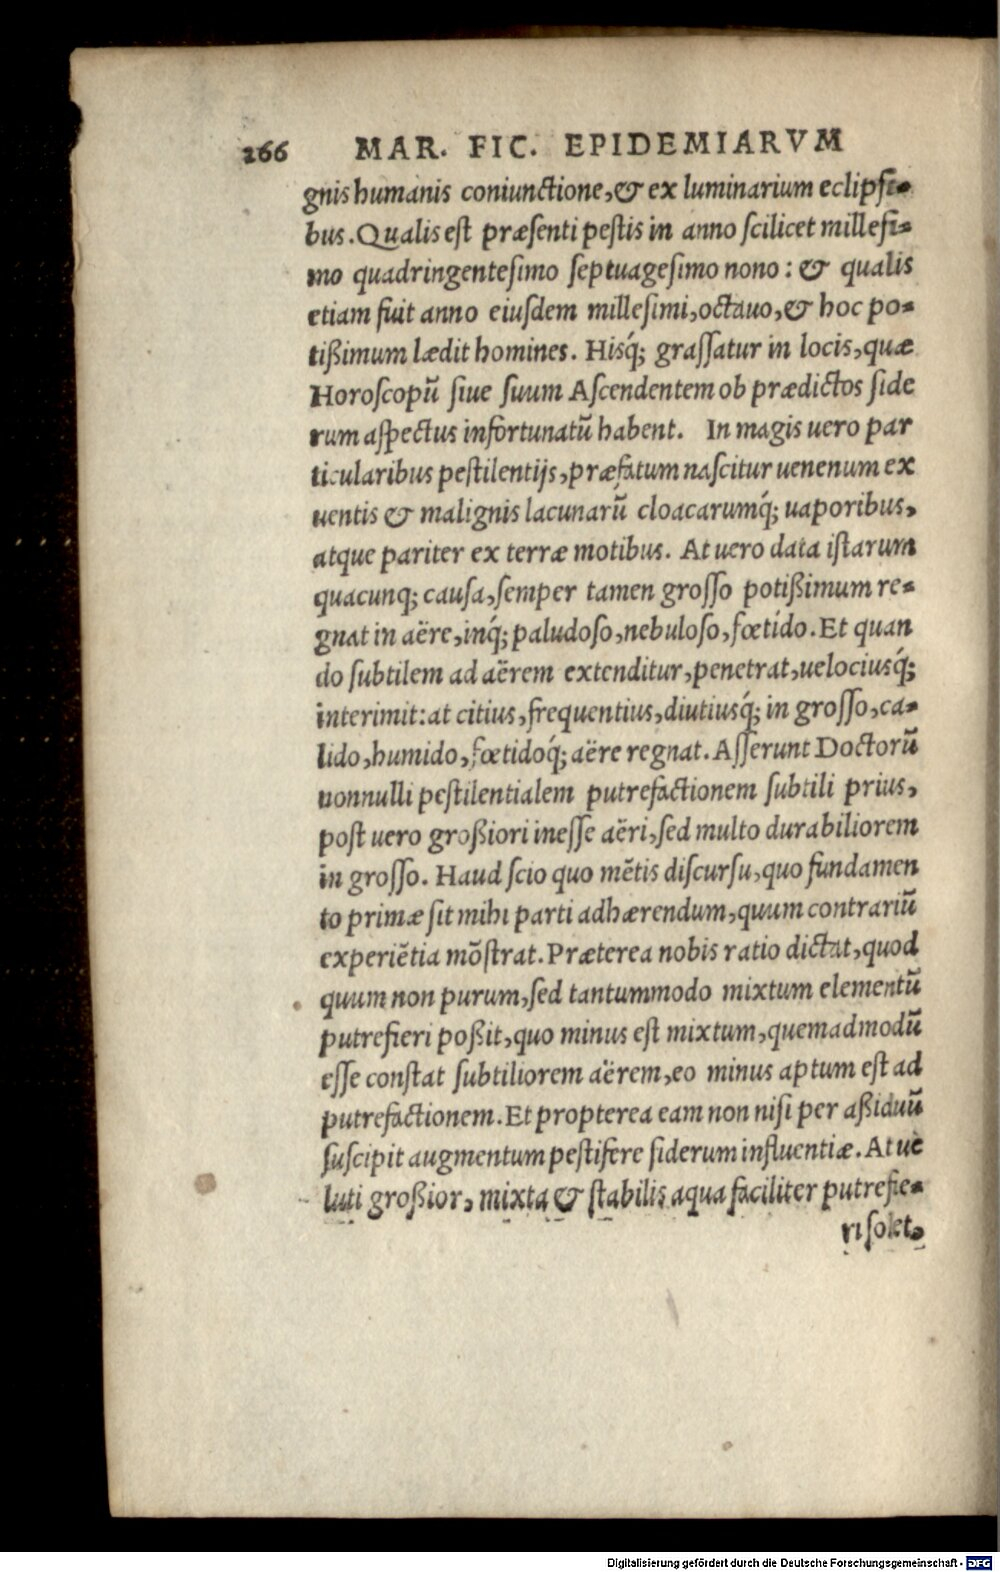 266 MAR. FIC. EPIDEMIARVM
gnis humanis coniunctione,& ex luminarium eclipsi-
bus. Qualis est præsenti pestis in anno scilicet millesi-
mo quadringentesimo septuagesimo nono: & qualis
etiam fuit anno eiusdem millesimi, octauo,& hoc po-
tißimum lædit homines. Hisq́; grassatur in locis, quæ
Horoscopū siue suum Ascendentem ob prædictos side
rum aspectus infortunatū habent. In magis uero par
ticularibus pestilentijs, præfatum nascitur uenenum ex
uentis & malignis lacunarū cloacarumq́; uaporibus,
atque pariter ex terræ motibus. At uero data istarum
quacunq; causa, semper tamen grosso potißimum re-
gnat in aëre, inq́; paludoso, nebuloso, fœtido. Et quan
do subtilem ad aërem extenditur, penetrat, uelociusq́;
interimit: at citius, frequentius, diutiusq́; in grosso, ca-
lido, humido, fœtidoq́; aëre regnat. Asserunt Doctorū
nonnulli pestilentialem putrefactionem subtili prius,
post uero großiori inesse aëri, sed multo durabiliorem
in grosso. Haud scio quo mētis discursu, quo fundamen
to primæ sit mihi parti adhærendum, quum contrariū
experiētia mōstrat. Præterea nobis ratio dictat, quod
quum non purum, sed tantummodo mixtum elementū
putrefieri poßit, quo minus est mixtum, quemadmodū
esse constat subtiliorem aërem, eo minus aptum est ad
putrefactionem. Et propterea eam non nisi per aßiduū
suscipit augmentum pestifere siderum influentiæ. At ue
luti großior, mixta & stabilis aqua faciliter putrefie-
ri solet,
Digitalisierung gefördert durch die Deutsche Forschungsgemeinschaft - DFG